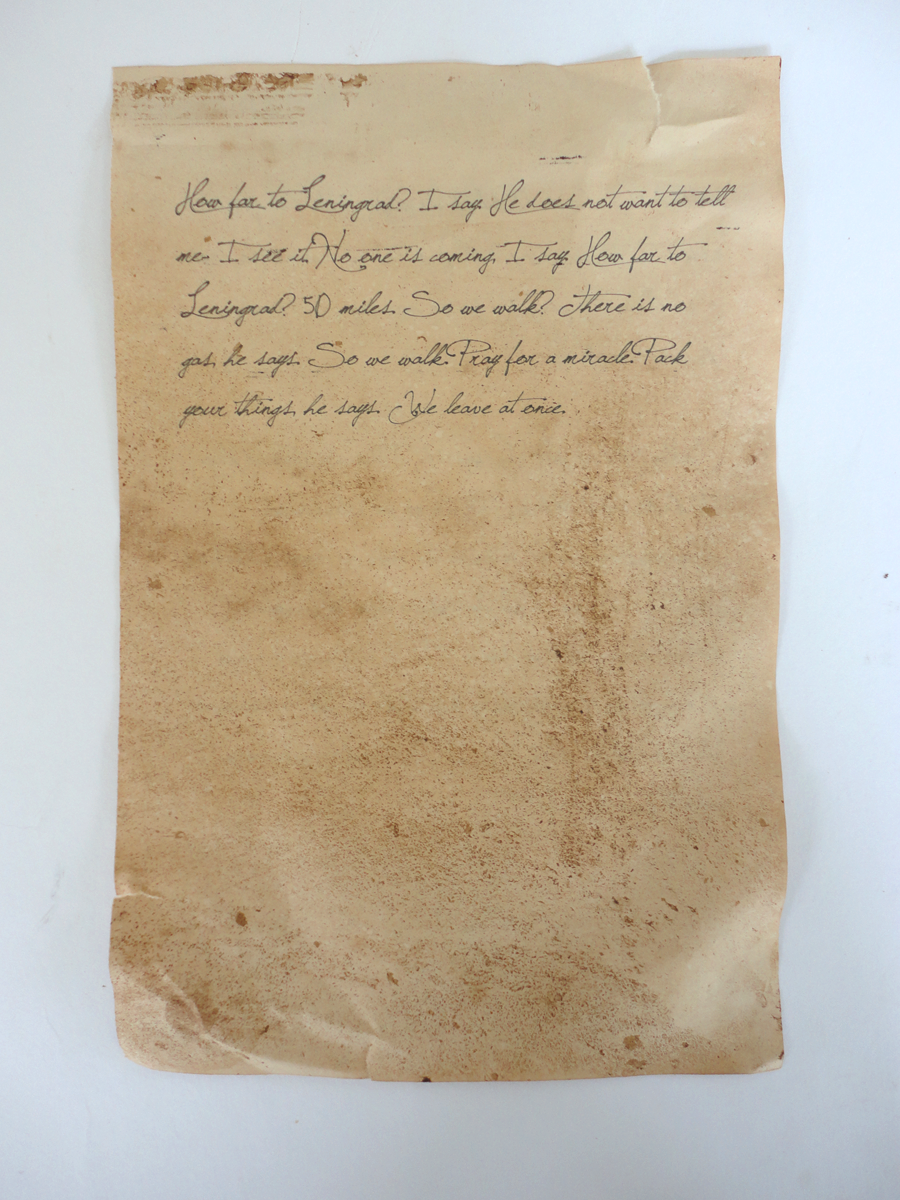 How far to Leningrad? I say. He does not want to tell
me. I see it. No one is coming. I say. How far to
Leningrad? 50 miles. So we walk? There is no
gas, he says. So we walk. Pray for a miracle. Pack
your things, he says. We leave at once.